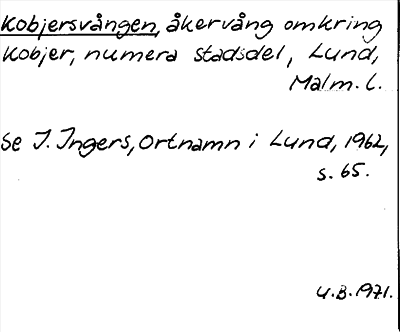 Kobjersvången, åkervång omkring
Kobjer, numera stadsdel, Lund,
Malm. l.
Se I. Ingers, Ortnamn i Lund, 1962,
s. 65.
U.B. 1971.